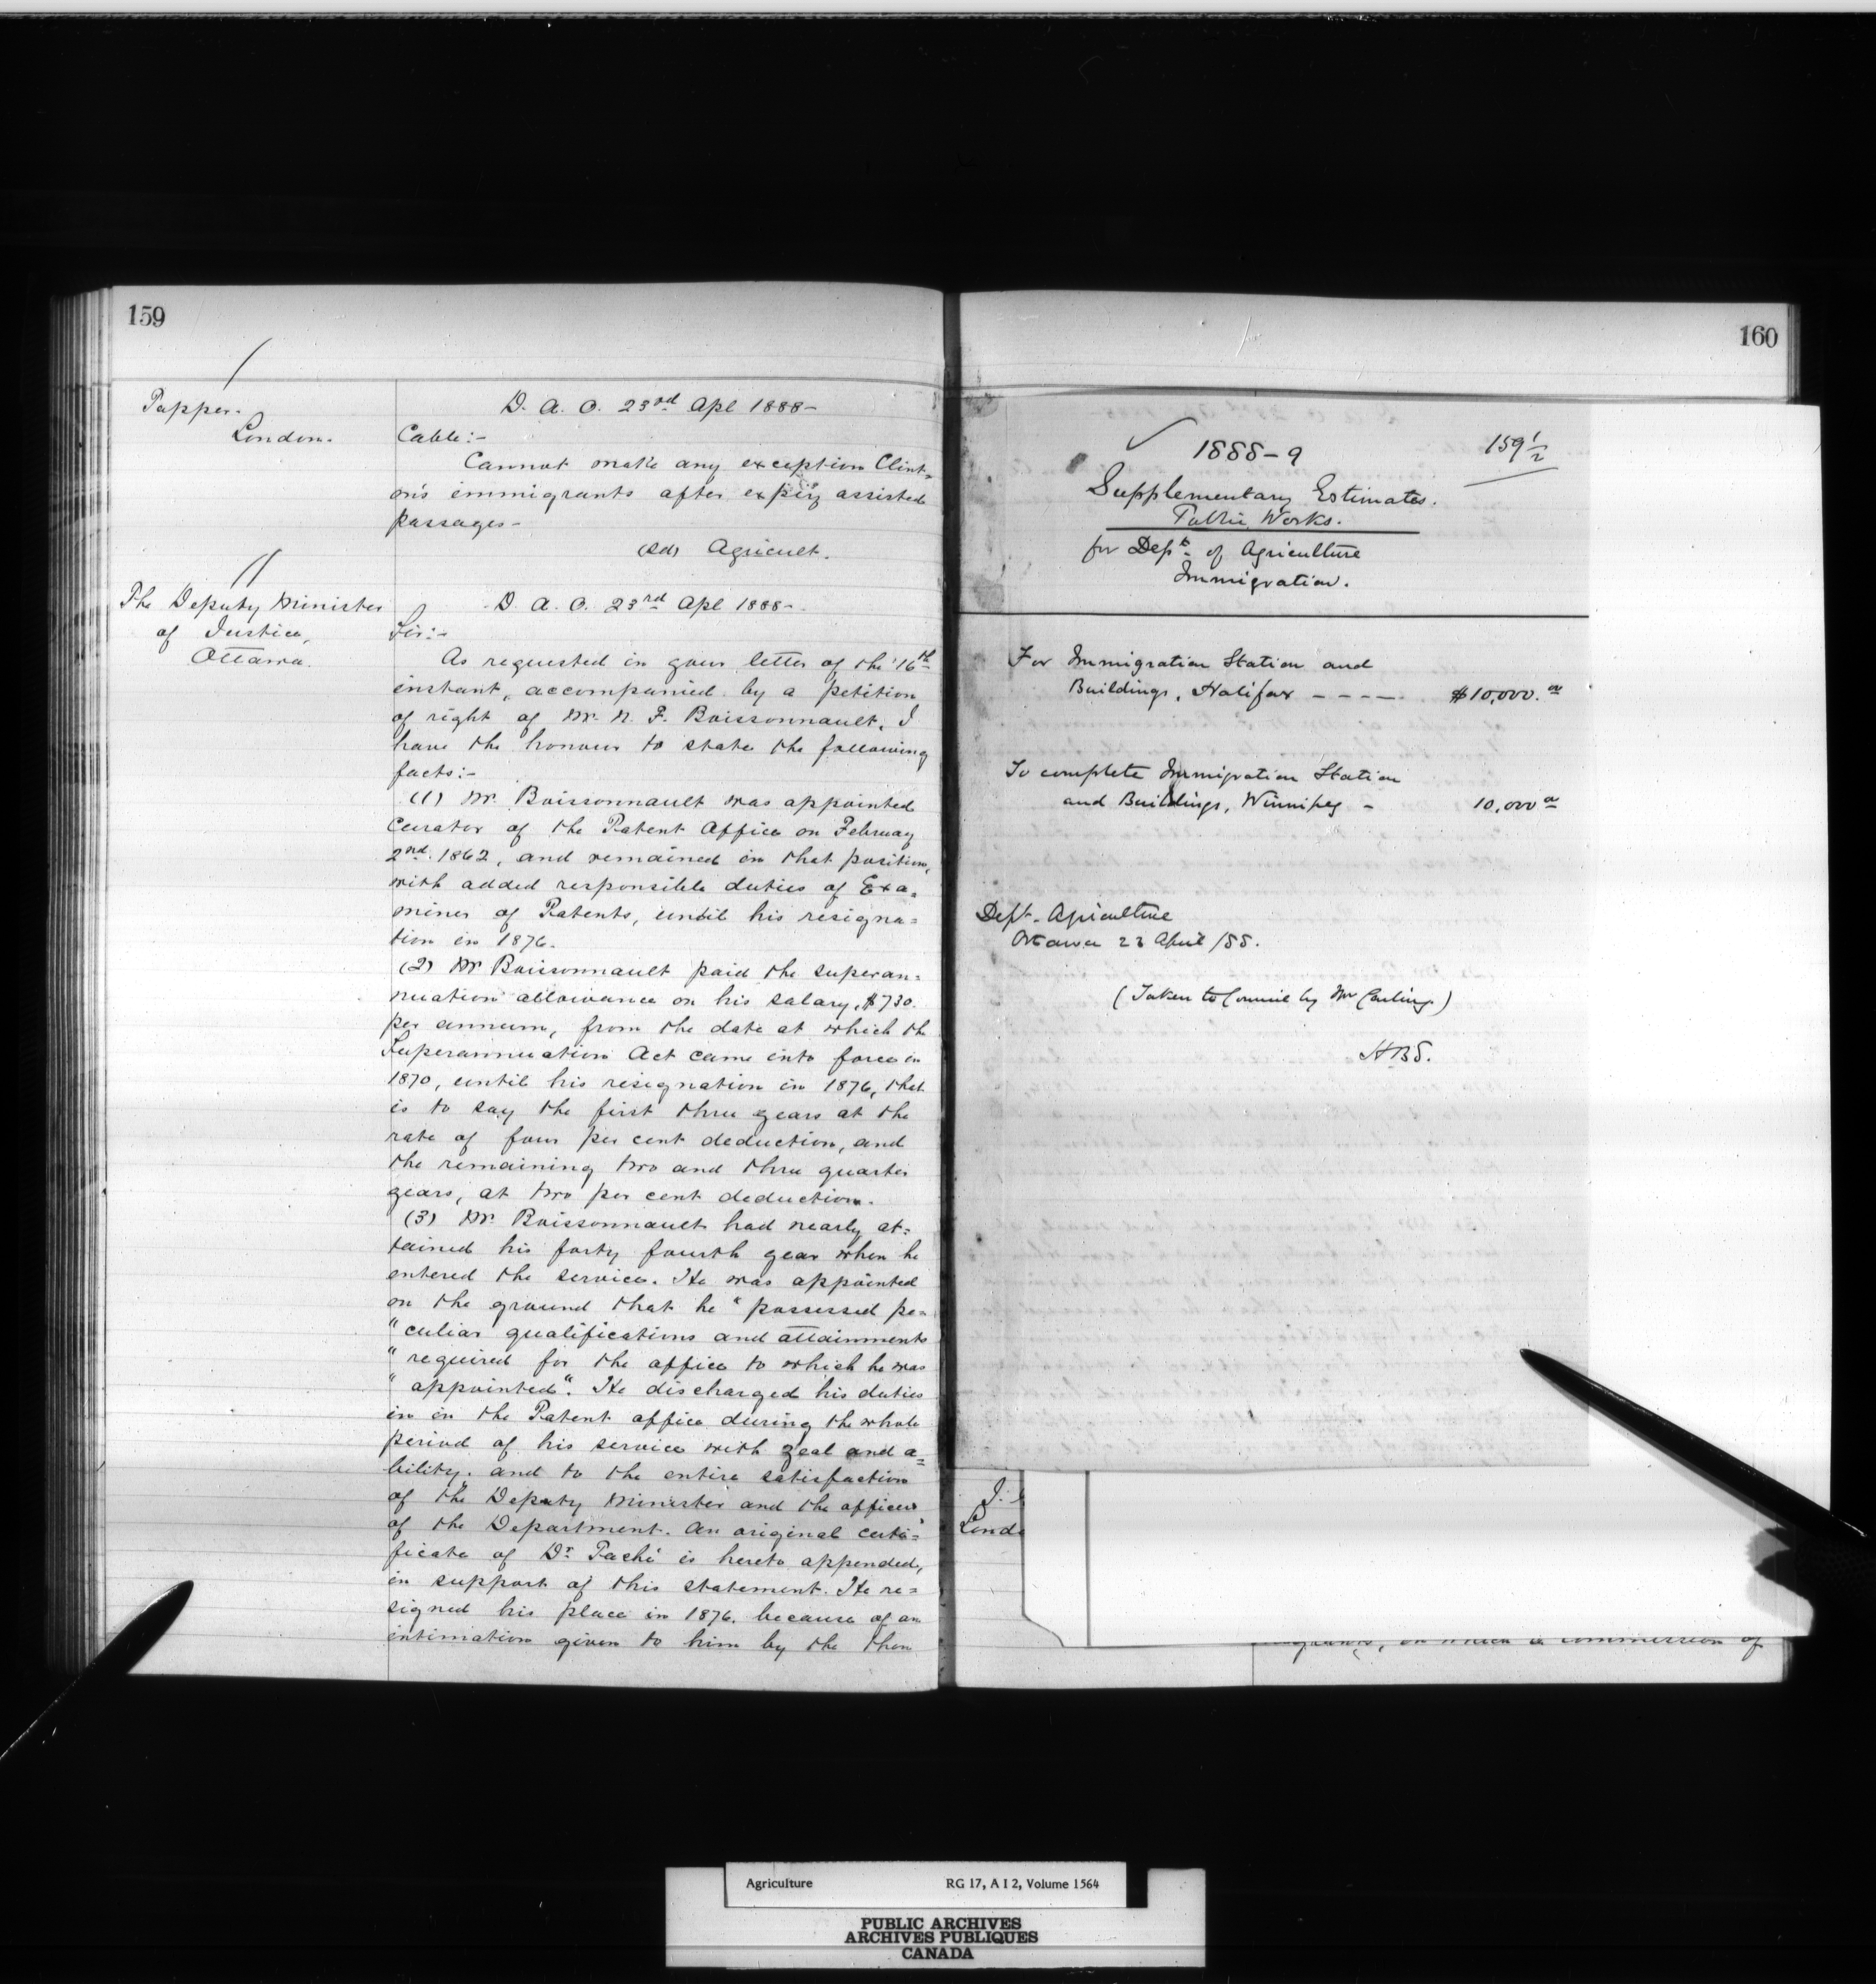 159
Tupper.
London.
D. A. O. 23rd Apl 1888-
Cable:-
Cannot make any exception Clint=
on's immigrants after expiry assisted
passages-
(Sd) Agricult.
The Deputy Minister
of Justice,
Ottawa.
D. A. O. 23rd Apl 1888-
Sir:-
As requested in your letter of the 16th
instant, accompanied by a petition
of right of Mr. N. F. Boissonnault, I
have the honour to state the following
facts:-
(1) Mr. Boissonnault was appointed
Curator of the Patent Office on February
2nd. 1862, and remained in that position,
with added responsible duties of Exa=
miner of Patents, until his resigna=
tion in 1876.
(2) Mr Boissonnault paid the superan=
nuation allowance on his salary, $730.
per annum, from the date at which the
Superannuation Act came into force in
1870, until his resignation in 1876, that
is to say the first three years at the
rate of four per cent deduction, and
the remaining two and three quarter
years, at two per cent deduction.
(3) Mr. Boissonnault had nearly at=
tained his forty fourth year when he
entered the service. He was appointed
on the ground that he "possessed pe=
"culiar qualifications and attainments
"required for the office to which he was
"appointed". He discharged his duties
in in the Patent office during the whole
period of his service with zeal and a=
bility. and to the entire satisfaction
of the Deputy Minister and the officers
of the Department. An original certi=
ficate of Dr. Taché is hereto appended,
in support of this statement. He re=
signed his place in 1876. because of an
intimation given to him by the then
160
159 1/2
1888-9
Supplementary Estimates.
Public Works.
for Dept. of Agriculture
Immigration.
For Immigration Station and
Buildings, Halifax - - - - $10,000.00
To complete Immigration Station
and Buildings, Winnipeg - 10,000 00
Dept. Agriculture
Ottawa 23 April /88.
(Taken to Council by Mr Carling)
H.B.S.
J.
Lond
on which a commission of
Agriculture RG 17, A I 2, Volume 1564
PUBLIC ARCHIVES
ARCHIVES PUBLIQUES
CANADA